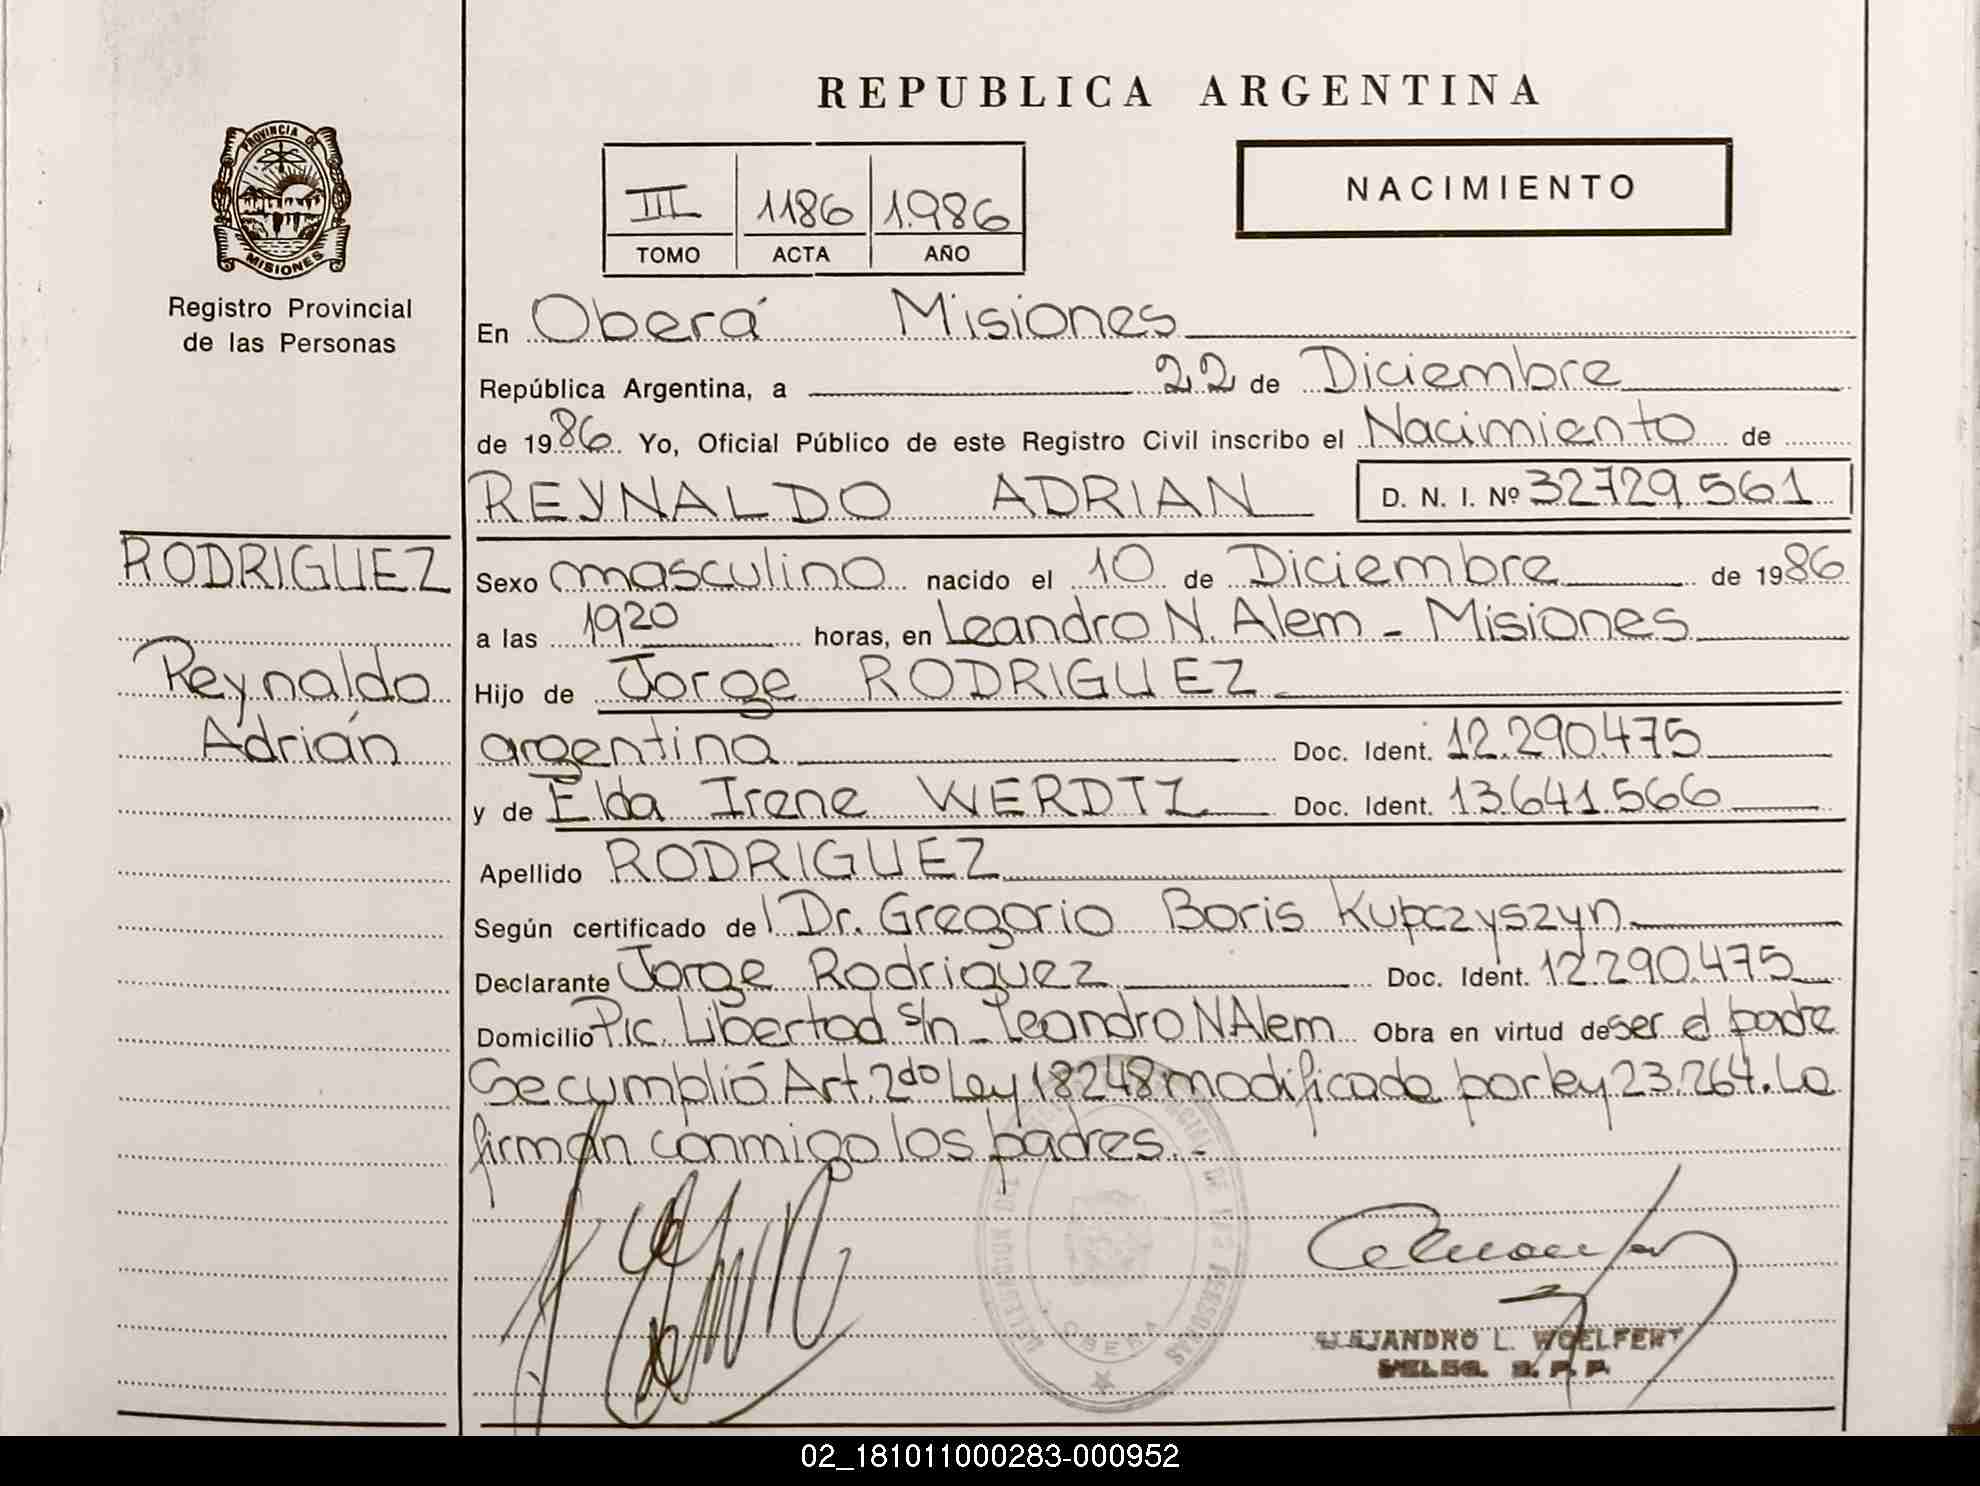 REPUBLICA ARGENTINA
PROVINCIA DE
MISIONES
Registro Provincial
de las Personas
III 1186 1.986
TOMO ACTA AÑO
NACIMIENTO
En Oberá Misiones
República Argentina, a 22 de Diciembre
de 1986. Yo, Oficial Público de este Registro Civil inscribo el Nacimiento de
REYNALDO ADRIAN D. N. I. Nº 32729.561
RODRIGUEZ
Reynaldo
Adrián
Sexo masculino nacido el 10 de Diciembre de 1986
a las 1920 horas, en Leandro N. Alem - Misiones
Hijo de Jorge RODRIGUEZ
argentina Doc. Ident. 12.290.475
y de Elda Irene WERDTZ Doc. Ident. 13.641.566
Apellido RODRIGUEZ
Según certificado del Dr. Gregorio Boris Kupczyszyn
Declarante Jorge Rodriguez Doc. Ident. 12.290.475
Domicilio Pic. Libertad s/n - Leandro N Alem Obra en virtud de ser el padre
Se cumplió Art. 2do Ley 18248 modificada por ley 23.264. La
firman conmigo los padres.-
DE LAS PERSONAS
OBERA
ALEJANDRO L. WOELFERT
02_181011000283-000952